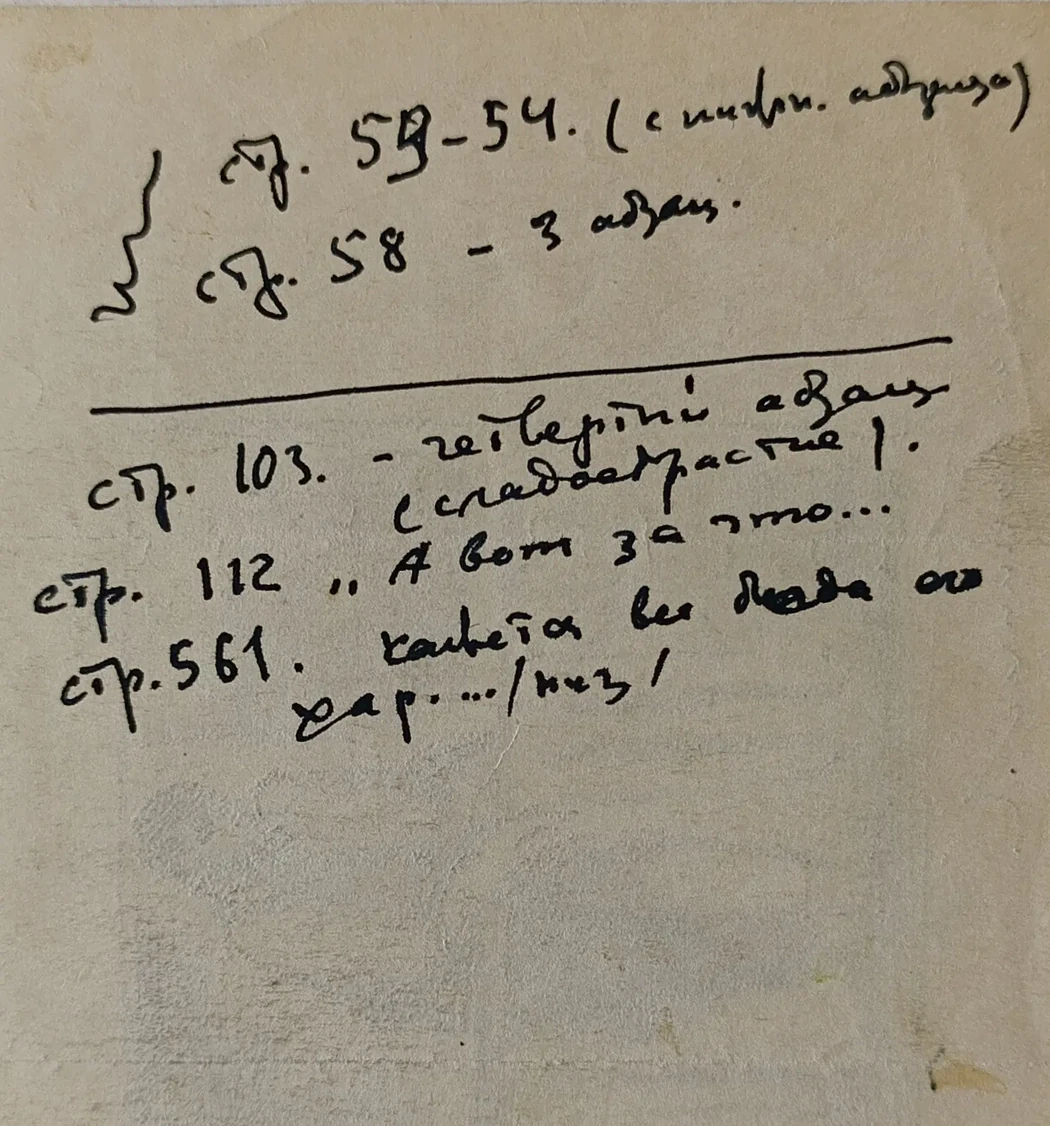 стр. 53-54. (с нижн. абзаца)
стр. 58 - 3 абзац.
стр. 103. - четвертый абзац
(сладострастие).
стр. 112 „ А вот за это...
стр. 561. кажется все его
хар. ... /низ/